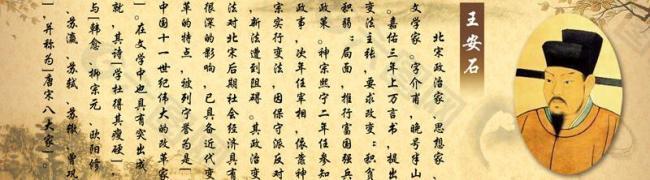 王安石
北宋政治家、思想家、
文学家。字介甫，晚号半山
。嘉佑三年上万言书，提出
变法主张，要求改变：积贫
积弱：局面，推行富国强兵
政策。神宗熙宁二年任参知
政事，次年任宰相，依靠神
宗实行变法，因保守派反对
，新法遭到阻碍。其政治变
法对北宋后期社会经济具有
很深的影响，已具备近代变
革的特点，被列宁誉为是「
中国十一世纪伟大的改革家
」。在文学中也具有突出成
就，其诗「学杜得其瘦硬」
与「韩愈、柳宗元、欧阳修
、苏、苏轼、苏辙、曾巩
」，并称为「唐宋八大家」。